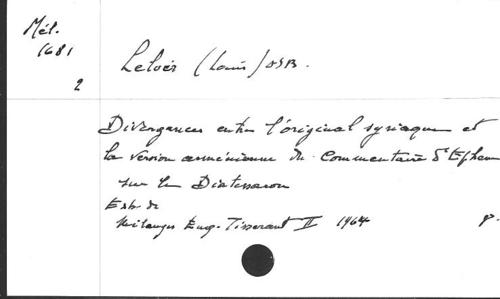 Mél.
1681
2
Leloir (Louis) OSB.
Divergences entre l'original syriaque et
la version arménienne du Commentaire d'Ephrem
sur le Diatessaron
Extr. de
Mélanges Eug. Tisserant II 1964 p.